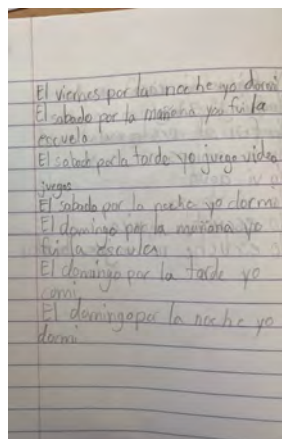 El viernes por las noche yo dormi
El sabado por la mañana yo fui la
escuela
El sabado por la tarde yo juego video
juegos
El sabado por la noche yo dormi
El domingo por la mañana yo
fui la escuela
El domingo por la tarde yo
comi
El domingo por la noche yo
dormi